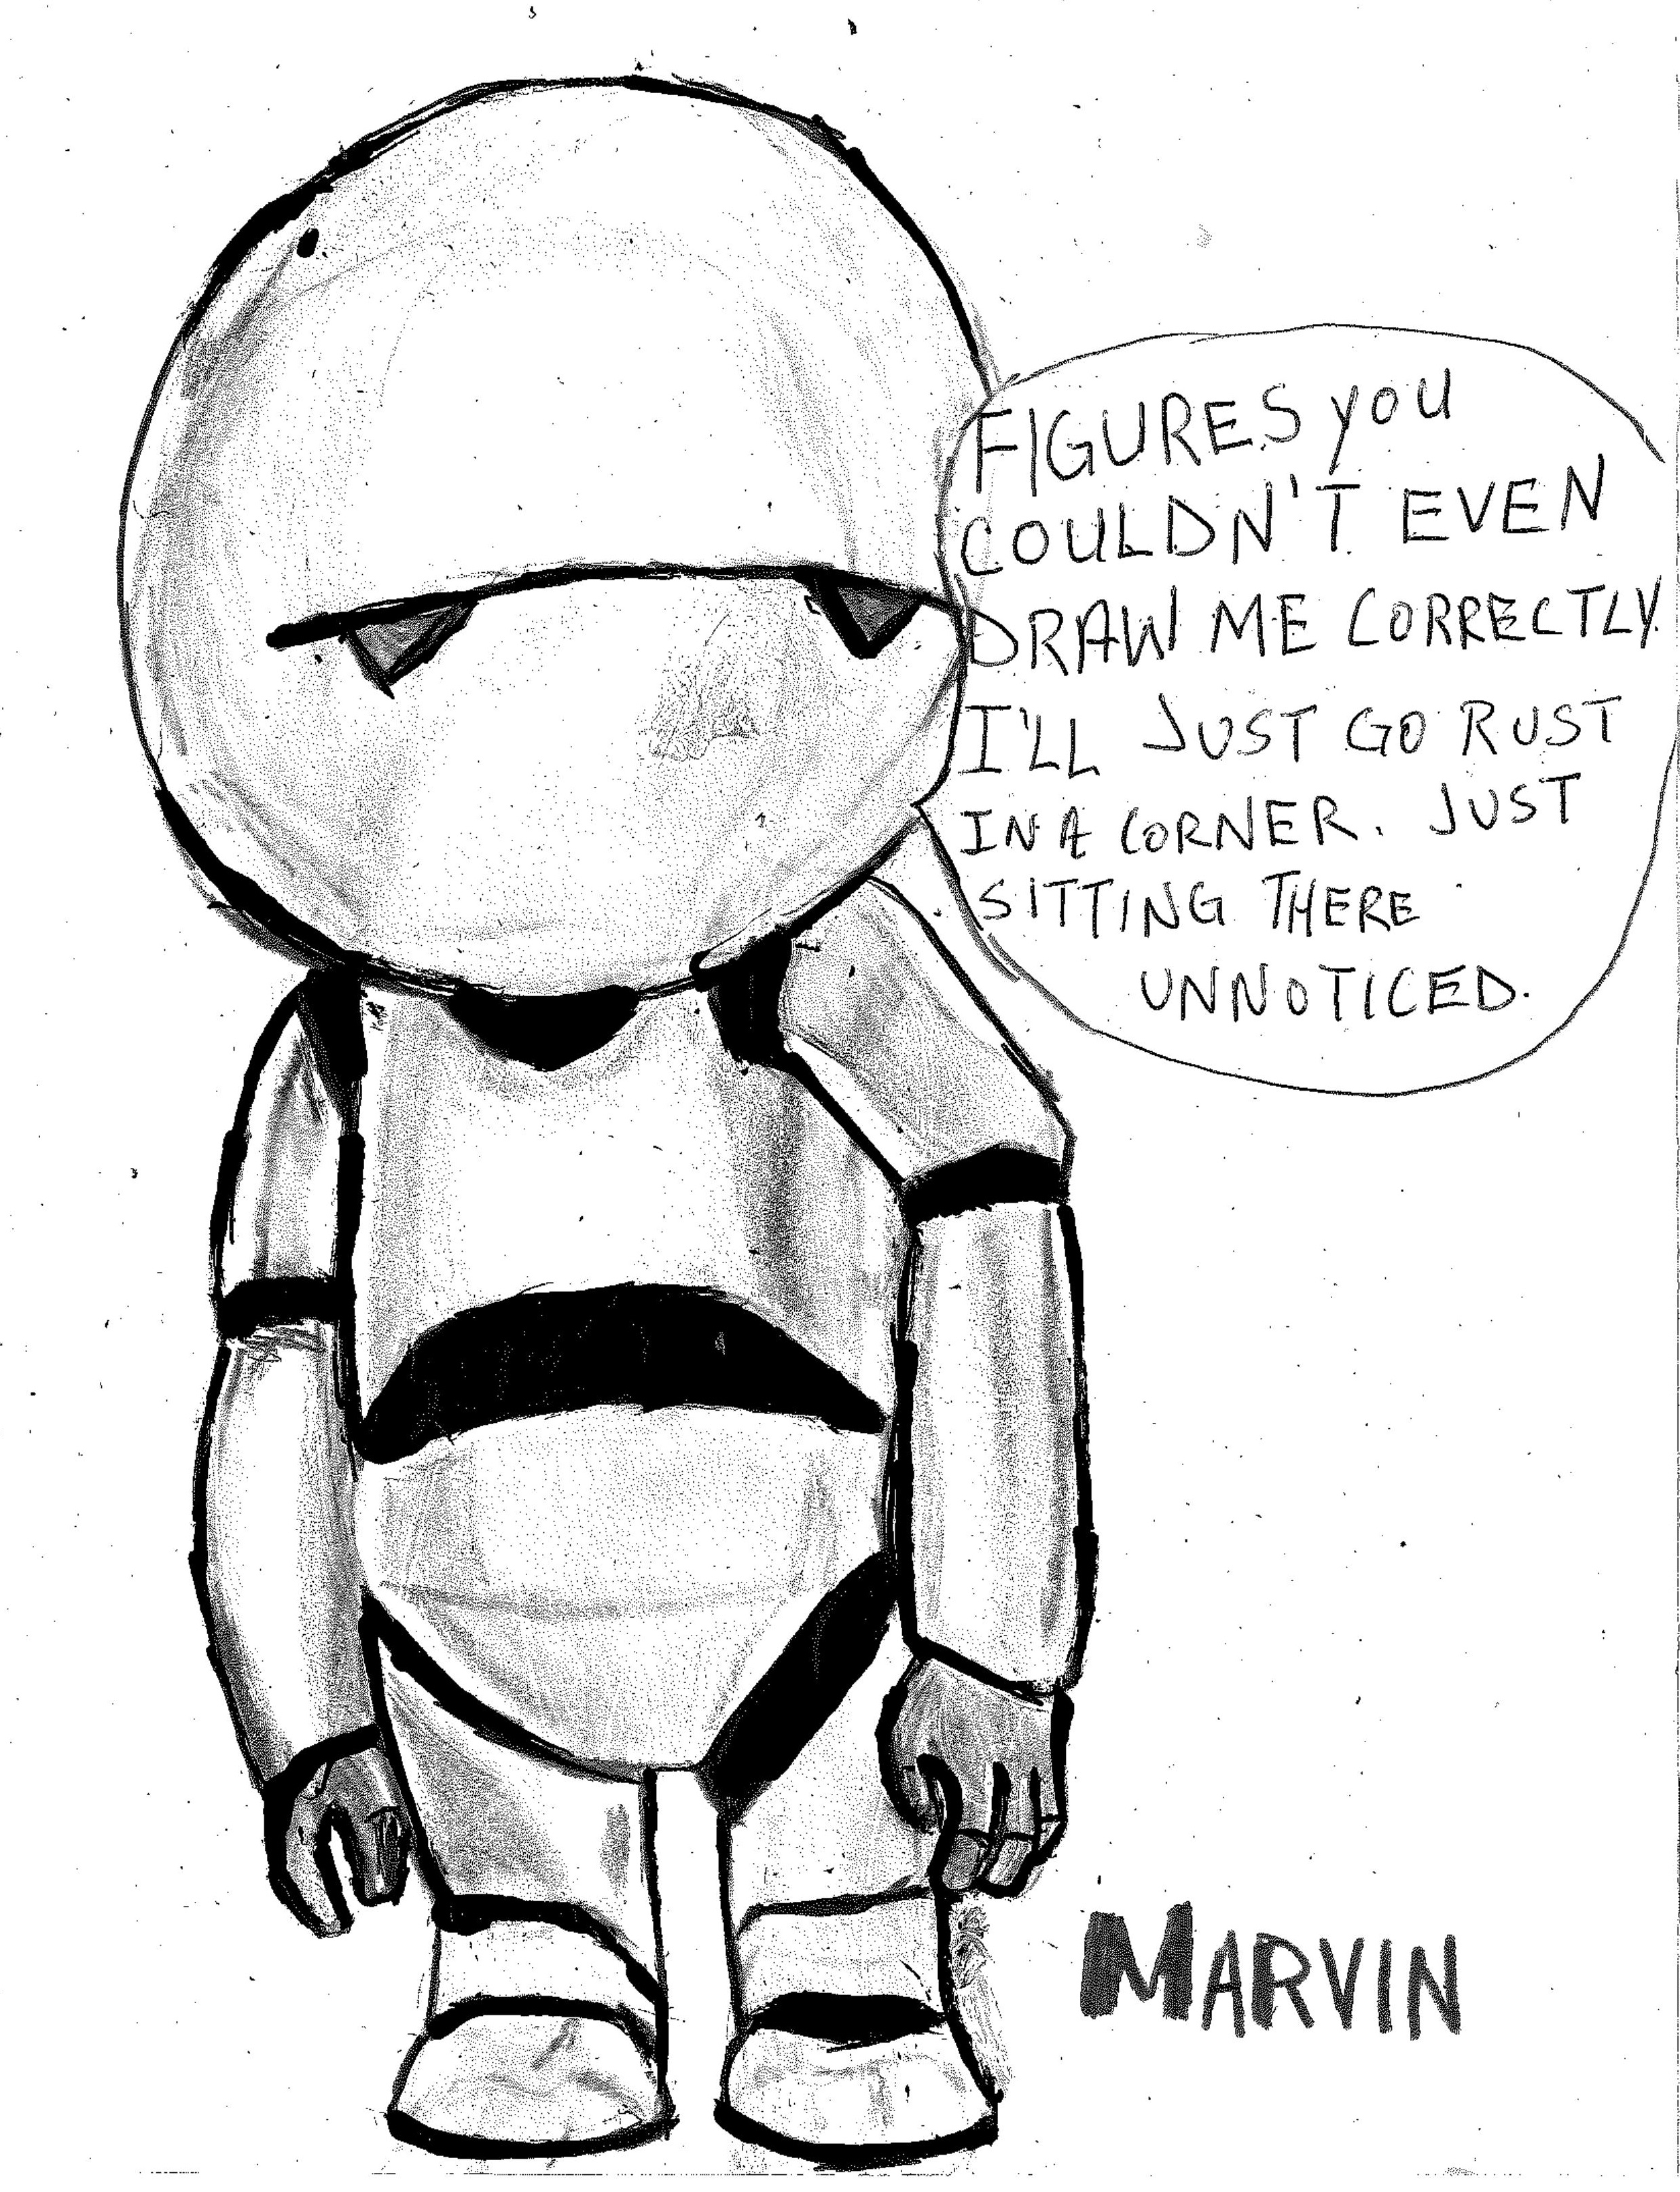 FIGURES YOU
COULDN'T EVEN
DRAW ME CORRECTLY.
I'LL JUST GO RUST
IN A CORNER. JUST
SITTING THERE
UNNOTICED.
MARVIN